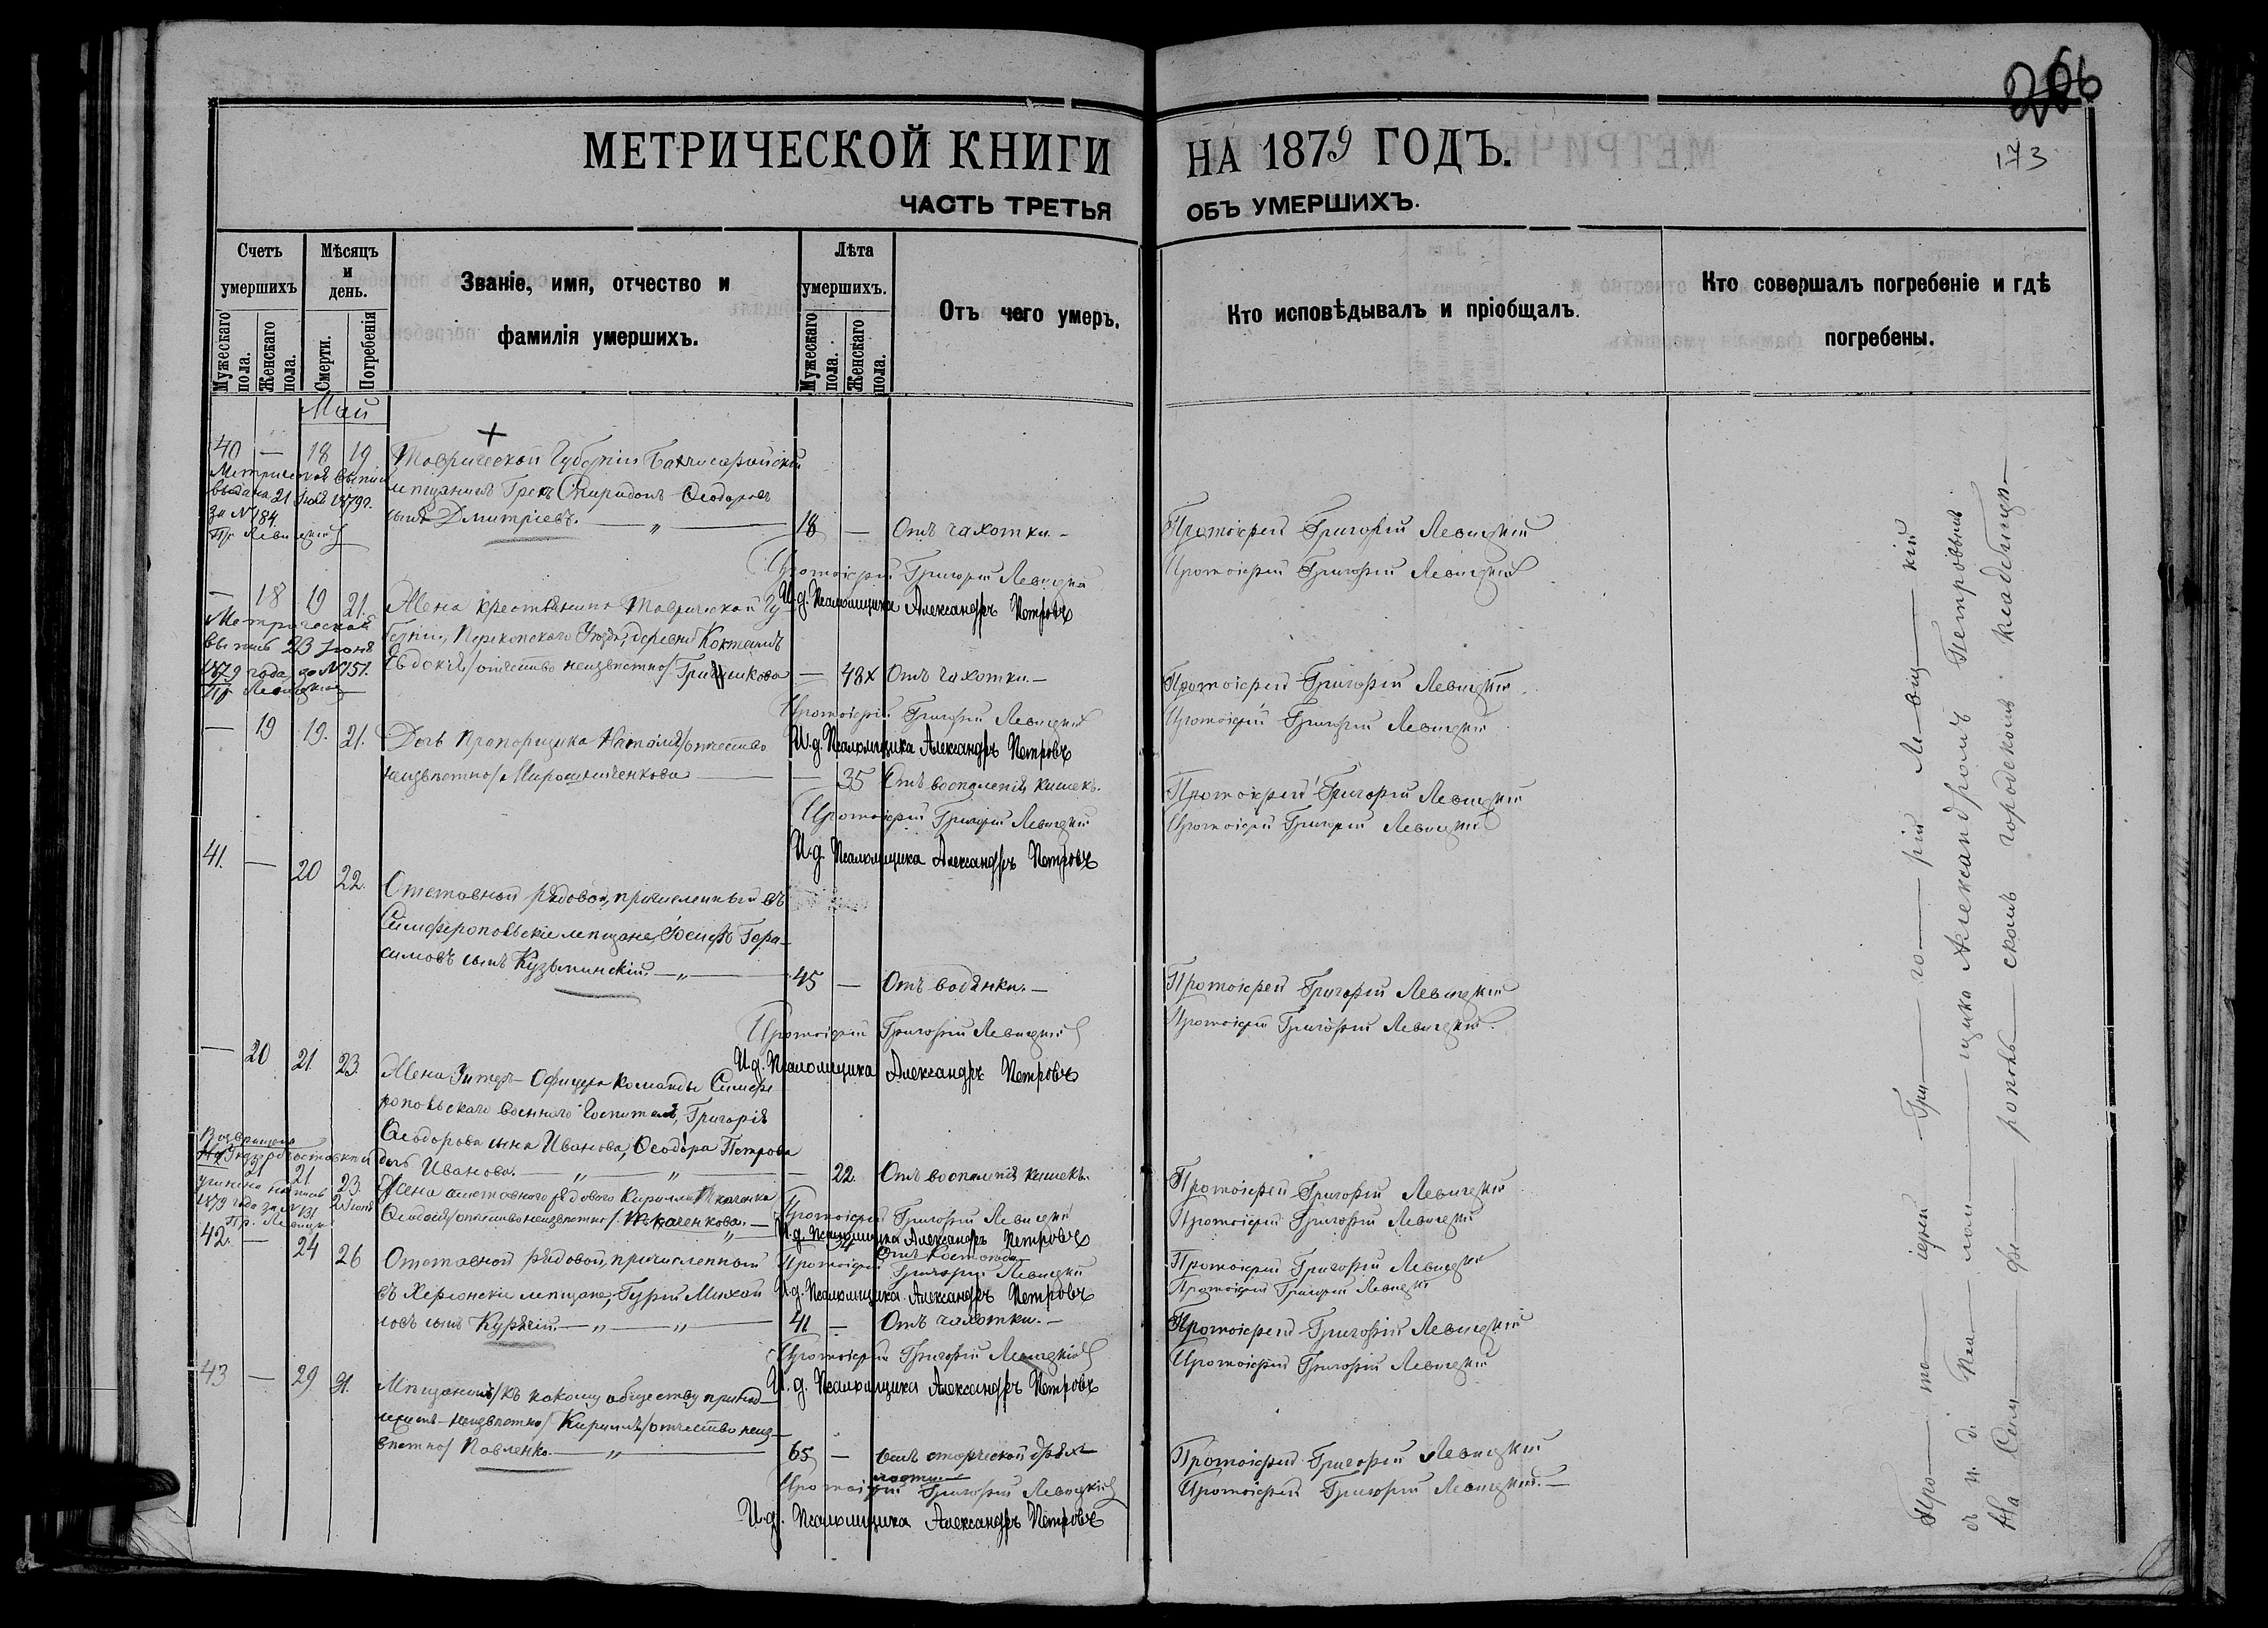 266
173
МЕТРИЧЕСКОЙ КНИГИ НА 1879 ГОДЪ.
ЧАСТЬ ТРЕТЬЯ ОБЪ УМЕРШИХЪ.
Счетъ умершихъ
Мужескаго пола.
Женскаго пола.
Мѣсяцъ и день.
Смерти.
Погребенія
Званіе, имя, отчество и
фамилія умершихъ.
Лѣта умершихъ.
Мужескаго пола.
Женскаго пола.
Отъ чего умеръ.
Кто исповѣдывалъ и пріобщалъ.
Кто совершалъ погребеніе и гдѣ
погребены.
Май
40 — 18 19 Таврической Губерніи Бахчисарайскій
мѣщанинъ Грекъ Спиридонъ Ѳеодоровъ
сынъ Дмитріевъ. — „ — 18 — Отъ чахотки. — Протоіерей Григорій Левицкій
выдана 21 1879г.
за № 184.
Пр Левицкій
Протоіерей Григорій Левицкій Протоіерей Григорій Левицкій
И.д. Псаломщика Александръ Петровъ
— 18 19 21. Жена крестьянина Таврической Гу-
берніи, Перекопскаго Уѣзда, деревни
Евдокія /отчество неизвѣстно/ — 48 Отъ чахотки. — Протоіерей Григорій Левицкій
Метрической
выпись 23 Іюня
1879 года за № 151.
Пр Левицкій
Протоіерей Григорій Левицкій Протоіерей Григорій Левицкій
И.д. Псаломщика Александръ Петровъ
— 19 19. 21. Дочь Прапорщика Наталія /отчество
неизвѣстно/ Мирошниченкова — — 35 Отъ воспаленія кишекъ. Протоіерей Григорій Левицкій
Протоіерей Григорій Левицкій Протоіерей Григорій Левицкій
И.д. Псаломщика Александръ Петровъ
41. — 20 22. Отставной рядовой, причисленный въ
Симферопольскіе мѣщане, Іосифъ Гера-
симовъ сынъ Кузьминскій. — „ — 45 — Отъ водянки. — Протоіерей Григорій Левицкій
Протоіерей Григорій Левицкій Протоіерей Григорій Левицкій.
И.д. Псаломщика Александръ Петровъ
— 20 21. 23. Жена Унтеръ-Офицера команды Симфе
ропольскаго военного Госпиталя, Григорія
Ѳеодорова сына Иванова, Ѳеодора Петрова
дочь Иванова. — „ — „ — — 22. Отъ воспаленія кишекъ. Протоіерей Григорій Левицкій
Протоіерей Григорій Левицкій Протоіерей Григорій Левицкій
И.д. Псаломщика Александръ Петровъ
21 21 23. Жена отставного рядового Кирилла Ткаченка
Ѳеодосія /отчество неизвѣстно/ Ткаченкова. — „ — Отъ Протоіерей Григорій Левицкій
1879 года за № 131
Пр. Левицкій
Протоіерей Григорій Левицкій Протоіерей Григорій Левицкій
И.д. Псаломщика Александръ Петровъ
42. — 24 26 Отставной рядовой, причисленный
въ Херсонскіе мѣщане, Гурій Михай
ловъ сынъ Курячій. — „ — „ — 41 — Отъ чахотки. — Протоіерей Григорій Левицкій
Протоіерей Григорій Левицкій Протоіерей Григорій Левицкій
И.д. Псаломщика Александръ Петровъ
43 — 29 31. Мѣщанинъ /къ какому обществу принад-
лежитъ неизвѣстно/ Кириллъ /отчество неиз-
вѣстно/ Павленко. — „ — 65 — Отъ старческой дрях-
лости. — Протоіерей Григорій Левицкій
Протоіерей Григорій Левицкій Протоіерей Григорій Левицкій. —
И.д. Псаломщика Александръ Петровъ
Про — то — іерей — Гри — го — рій — Левиц — кій
съ и. д. Пса — лом — щика Александромъ Петровымъ
На Сим — фе — рополь — скомъ городскомъ кладбищѣ —